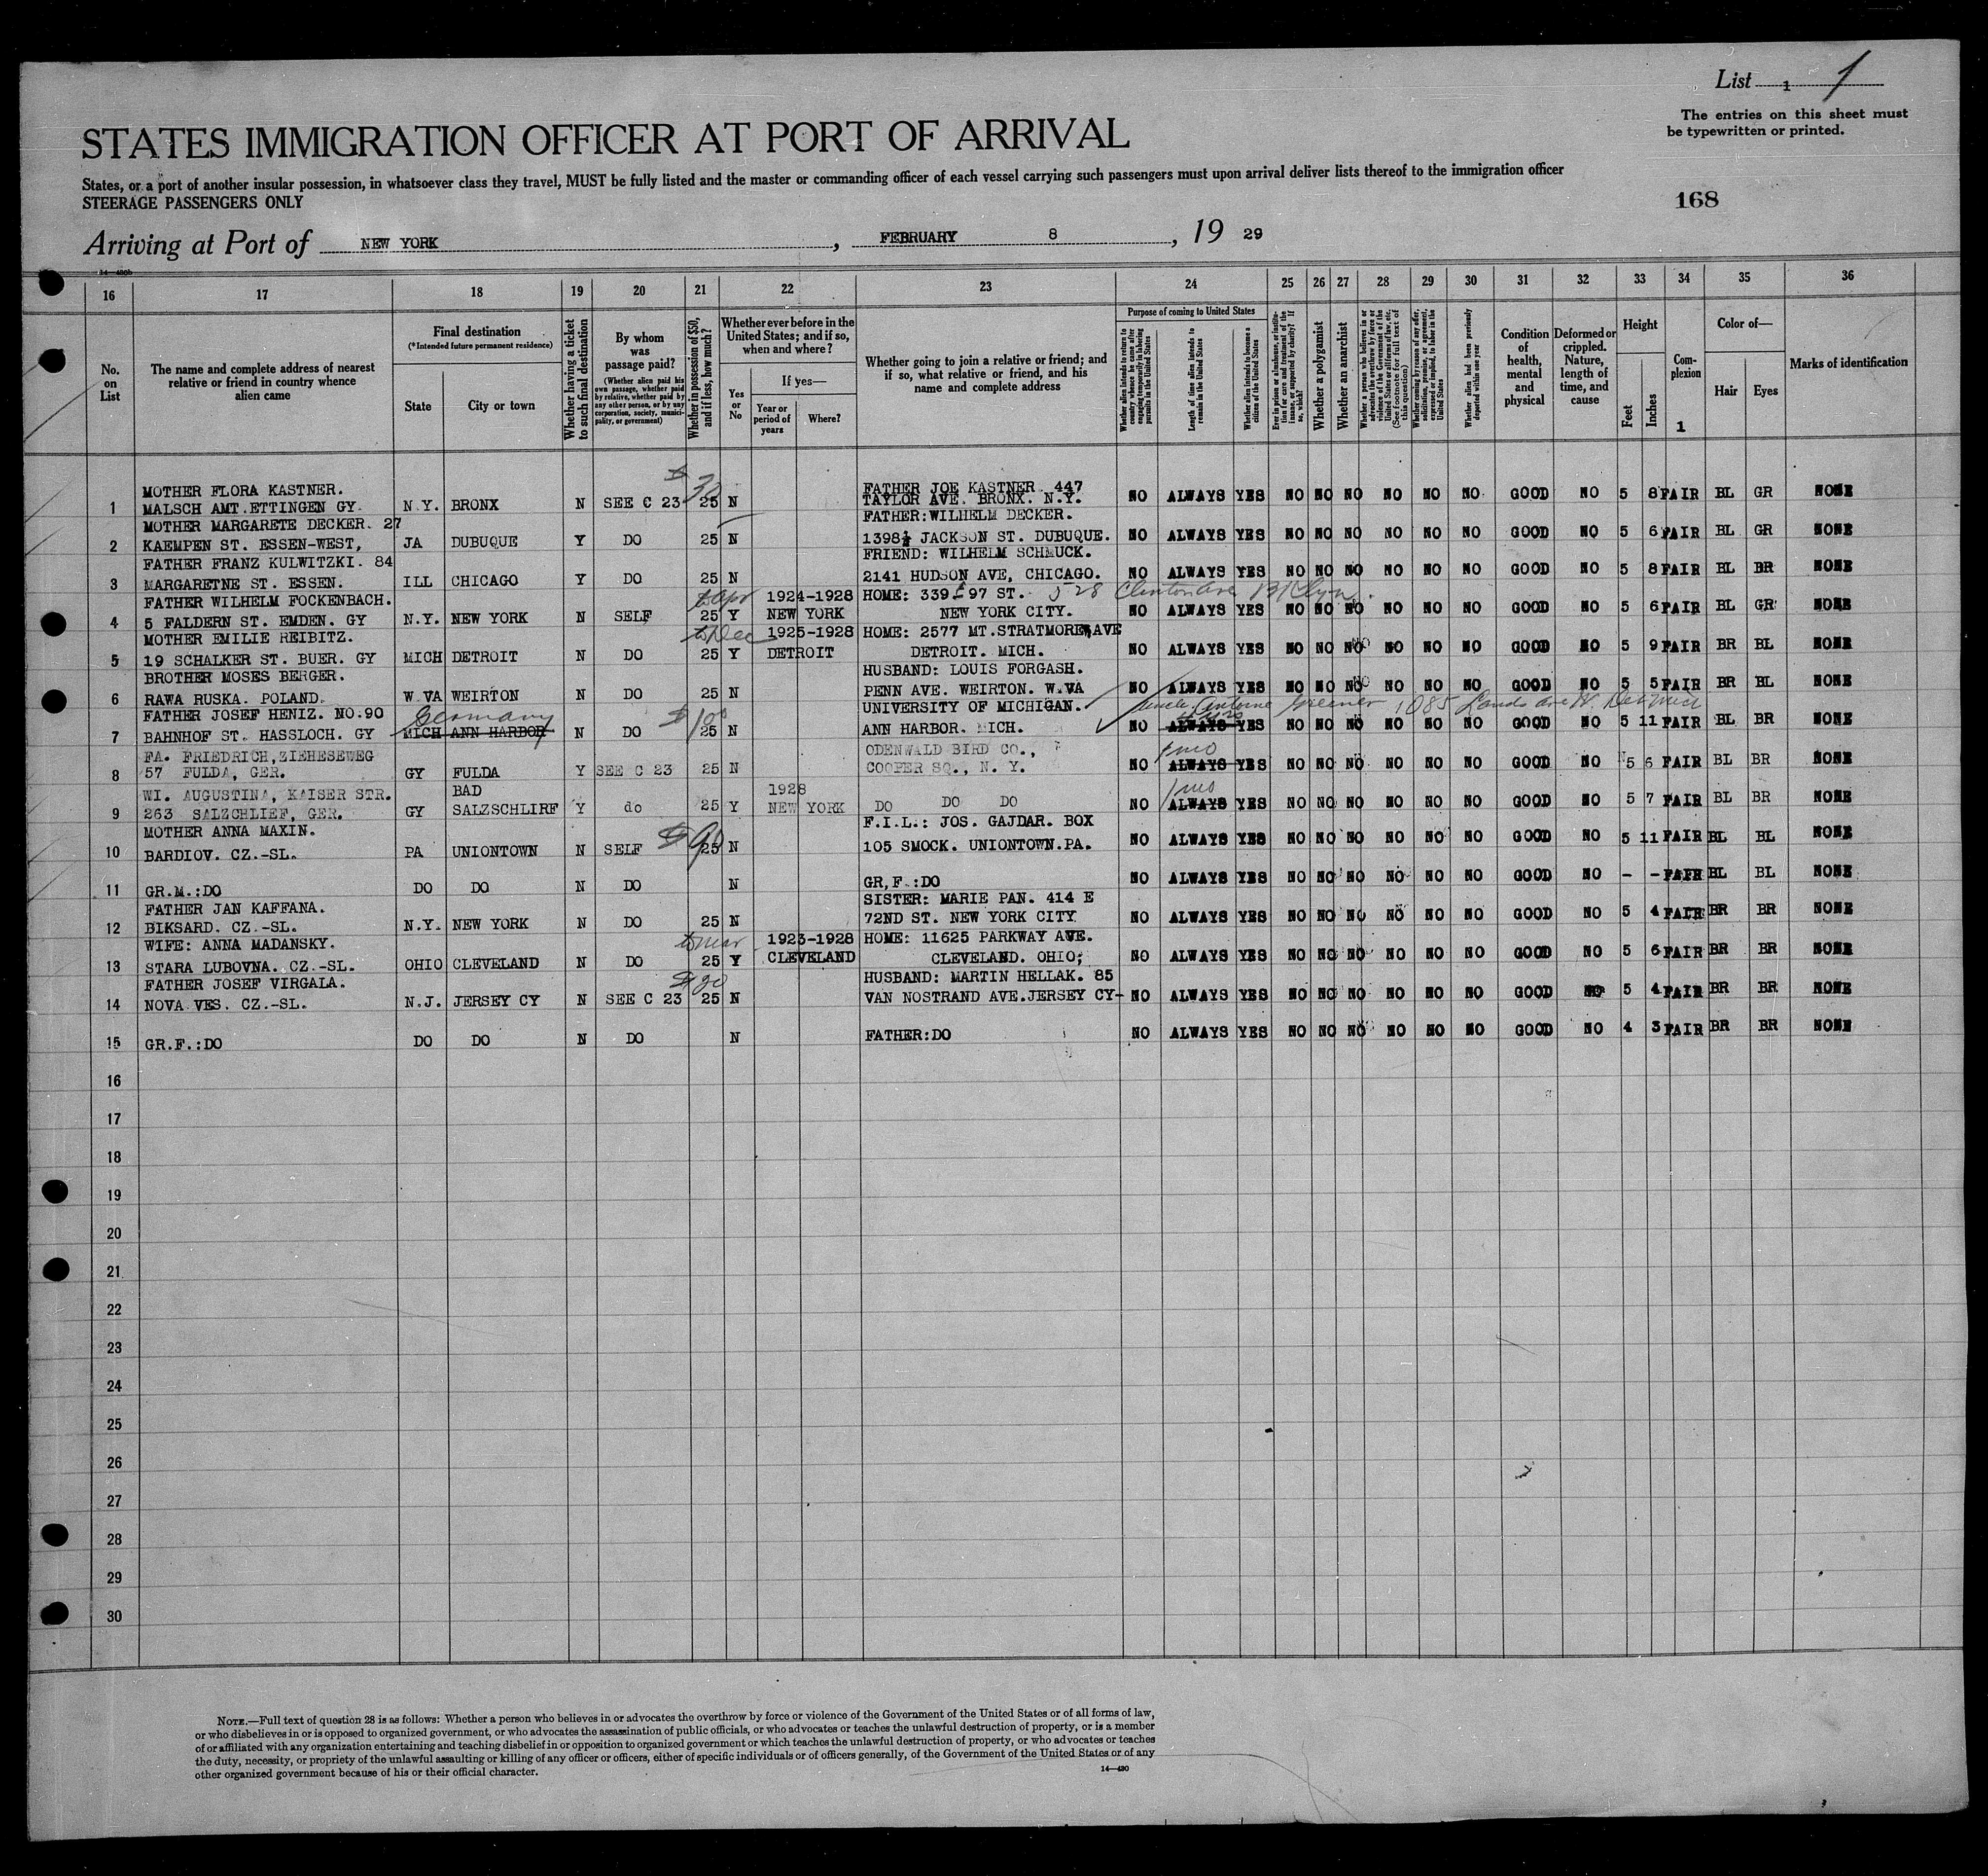 List 1 1
The entries on this sheet must
be typewritten or printed.
STATES IMMIGRATION OFFICER AT PORT OF ARRIVAL
States, or a port of another insular possession, in whatsoever class they travel, MUST be fully listed and the master or commanding officer of each vessel carrying such passengers must upon arrival deliver lists thereof to the immigration officer
STEERAGE PASSENGERS ONLY
168
Arriving at Port of NEW YORK, FEBRUARY 8, 19 29
14—430b
16 17 18 19 20 21 22 23 24 25 26 27 28 29 30 31 32 33 34 35 36
No.
on
List
The name and complete address of nearest
relative or friend in country whence
alien came
Final destination
(*Intended future permanent residence)
State
City or town
Whether having a ticket
to such final destination
By whom
was
passage paid?
(Whether alien paid his
own passage, whether paid
by relative, whether paid by
any other person, or by any
corporation, society, munici-
pality, or government)
Whether in possession of $50,
and if less, how much?
Whether ever before in the
United States; and if so,
when and where?
Yes
or
No
If yes—
Year or
period of
years
Where?
Whether going to join a relative or friend; and
if so, what relative or friend, and his
name and complete address
Purpose of coming to United States
Whether alien intends to return to
country whence he came after
engaging temporarily in laboring
pursuits in the United States
Length of time alien intends to
remain in the United States
Whether alien intends to become a
citizen of the United States
Ever in prison or almshouse, or institu-
tion for care and treatment of the
insane, or supported by charity? If
so, which?
Whether a polygamist
Whether an anarchist
Whether a person who believes in or
advocates the overthrow by force or
violence of the Government of the
United States or all forms of law, etc.
(See footnote for full text of
this question)
Whether coming by reason of any offer,
solicitation, promise, or agreement,
expressed or implied, to labor in the
United States
Whether alien had been previously
deported within one year
Condition
of
health,
mental
and
physical
Deformed or
crippled.
Nature,
length of
time, and
cause
Height
Feet
Inches
Com-
plexion
1
Color of—
Hair
Eyes
Marks of identification
MOTHER FLORA KASTNER. $30 FATHER JOE KASTNER 447
1 MALSCH AMT.ETTINGEN GY. N.Y. BRONX N SEE C 23 25 N TAYLOR AVE. BRONX. N.Y. NO ALWAYS YES NO NO NO NO NO NO GOOD NO 5 8 FAIR BL GR NONE
MOTHER MARGARETE DECKER. 27 FATHER:WILHELM DECKER.
2 KAEMPEN ST. ESSEN-WEST, JA DUBUQUE Y DO 25 N 1398½ JACKSON ST. DUBUQUE. NO ALWAYS YES NO NO NO NO NO NO GOOD NO 5 6 FAIR BL GR NONE
FATHER FRANZ KULWITZKI. 84 FRIEND: WILHELM SCHMUCK.
3 MARGARETNE ST. ESSEN. ILL CHICAGO Y DO 25 N 2141 HUDSON AVE, CHICAGO. NO ALWAYS YES NO NO NO NO NO NO GOOD NO 5 8 FAIR BL BR NONE
FATHER WILHELM FOCKENBACH. to apr 1924-1928 HOME: 339 E 97 ST. 528 Clinton Ave Bklyn.
4 5 FALDERN ST. EMDEN. GY N.Y. NEW YORK N SELF 25 Y NEW YORK NEW YORK CITY. NO ALWAYS YES NO NO NO NO NO NO GOOD NO 5 6 FAIR BL GR NONE
MOTHER EMILIE REIBITZ. to Dec 1925-1928 HOME: 2577 MT.STRATMORE AVE
5 19 SCHALKER ST. BUER. GY MICH DETROIT N DO 25 Y DETROIT DETROIT. MICH. NO ALWAYS YES NO NO NO NO NO NO GOOD NO 5 9 FAIR BR BL NONE
BROTHER MOSES BERGER. HUSBAND: LOUIS FORGASH.
6 RAWA RUSKA. POLAND. W.VA WEIRTON N DO 25 N PENN AVE. WEIRTON. W.VA NO ALWAYS YES NO NO NO NO NO NO GOOD NO 5 5 FAIR BR BL NONE
FATHER JOSEF HENIZ. NO.90 Germany $100 UNIVERSITY OF MICHIGAN. Uncle Antoine 1085
7 BAHNHOF ST. HASSLOCH. GY MICH ANN HARBOR N DO 25 N ANN HARBOR. MICH. NO ALWAYS YES NO NO NO NO NO NO GOOD NO 5 11 FAIR BL BR NONE
FA. FRIEDRICH,ZIEHESEWEG ODENWALD BIRD CO., 1 mo
8 57 FULDA, GER. GY FULDA Y SEE C 23 25 N COOPER SQ., N. Y. NO ALWAYS YES NO NO NO NO NO NO GOOD NO 5 6 FAIR BL BR NONE
WI. AUGUSTINA, KAISER STR. BAD 1928 1 mo
9 263 SALZCHLIEF, GER. GY SALZSCHLIRF Y do 25 Y NEW YORK DO DO DO NO ALWAYS YES NO NO NO NO NO NO GOOD NO 5 7 FAIR BL BR NONE
MOTHER ANNA MAXIN. $90 F.I.L.: JOS. GAJDAR. BOX
10 BARDIOV. CZ.-SL. PA UNIONTOWN N SELF 25 N 105 SMOCK. UNIONTOWN.PA. NO ALWAYS YES NO NO NO NO NO NO GOOD NO 5 11 FAIR BL BL NONE
11 GR.M.:DO DO DO N DO N GR,F.:DO NO ALWAYS YES NO NO NO NO NO NO GOOD NO - - FAIR BL BL NONE
FATHER JAN KAFFANA. SISTER: MARIE PAN. 414 E
12 BIKSARD. CZ.-SL. N.Y. NEW YORK N DO 25 N 72ND ST. NEW YORK CITY NO ALWAYS YES NO NO NO NO NO NO GOOD NO 5 4 FAIR BR BR NONE
WIFE: ANNA MADANSKY. to mar 1923-1928 HOME: 11625 PARKWAY AVE.
13 STARA LUBOVNA. CZ.-SL. OHIO CLEVELAND N DO 25 Y CLEVELAND CLEVELAND. OHIO; NO ALWAYS YES NO NO NO NO NO NO GOOD NO 5 6 FAIR BR BR NONE
FATHER JOSEF VIRGALA. HUSBAND: MARTIN HELLAK. 85
14 NOVA VES. CZ.-SL. N.J. JERSEY CY N SEE C 23 25 N VAN NOSTRAND AVE.JERSEY CY- NO ALWAYS YES NO NO NO NO NO NO GOOD NO 5 4 FAIR BR BR NONE
15 GR.F.:DO DO DO N DO N FATHER:DO NO ALWAYS YES NO NO NO NO NO NO GOOD NO 4 3 FAIR BR BR NONE
16
17
18
19
20
21
22
23
24
25
26
27
28
29
30
NOTE.—Full text of question 28 is as follows: Whether a person who believes in or advocates the overthrow by force or violence of the Government of the United States or of all forms of law,
or who disbelieves in or is opposed to organized government, or who advocates the assassination of public officials, or who advocates or teaches the unlawful destruction of property, or is a member
of or affiliated with any organization entertaining and teaching disbelief in or opposition to organized government or which teaches the unlawful destruction of property, or who advocates or teaches
the duty, necessity, or propriety of the unlawful assaulting or killing of any officer or officers, either of specific individuals or of officers generally, of the Government of the United States or of any
other organized government because of his or their official character.
14—430